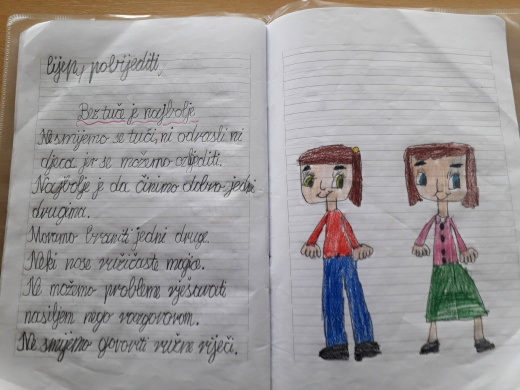 lijep, pobijediti,
Bez tuče je najbolje
Ne smijemo se tući, ni odrasli ni
djeca jer se možemo ozlijediti.
Najbolje je da činimo dobro jedni
drugima.
Moramo braniti jedni druge.
Neki nose ružičaste majice.
Ne možemo probleme rješavati
nasiljem nego razgovorom.
Ne smijemo govoriti ružne riječi.